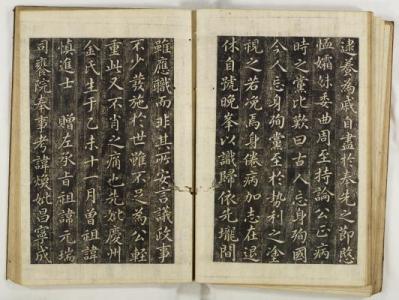 逮養爲戚自盡於奉先之節慇
恤孀妹委曲周至持論公正病
時之黨比歎曰古人忘身殉國
今人忘身殉黨至於勢利之塗
視之若浼焉身病加志在退
休自號晚峯以識歸依先壠間
雖應職而非其所安言議政事
不少發施於世雖不足爲公輕
重此又不肖之痛也先妣慶州
金氏生于乙未十一月曾祖諱
愼進士 贈左承旨祖諱元瑞
司饔院奉事考諱煥妣昌寧成